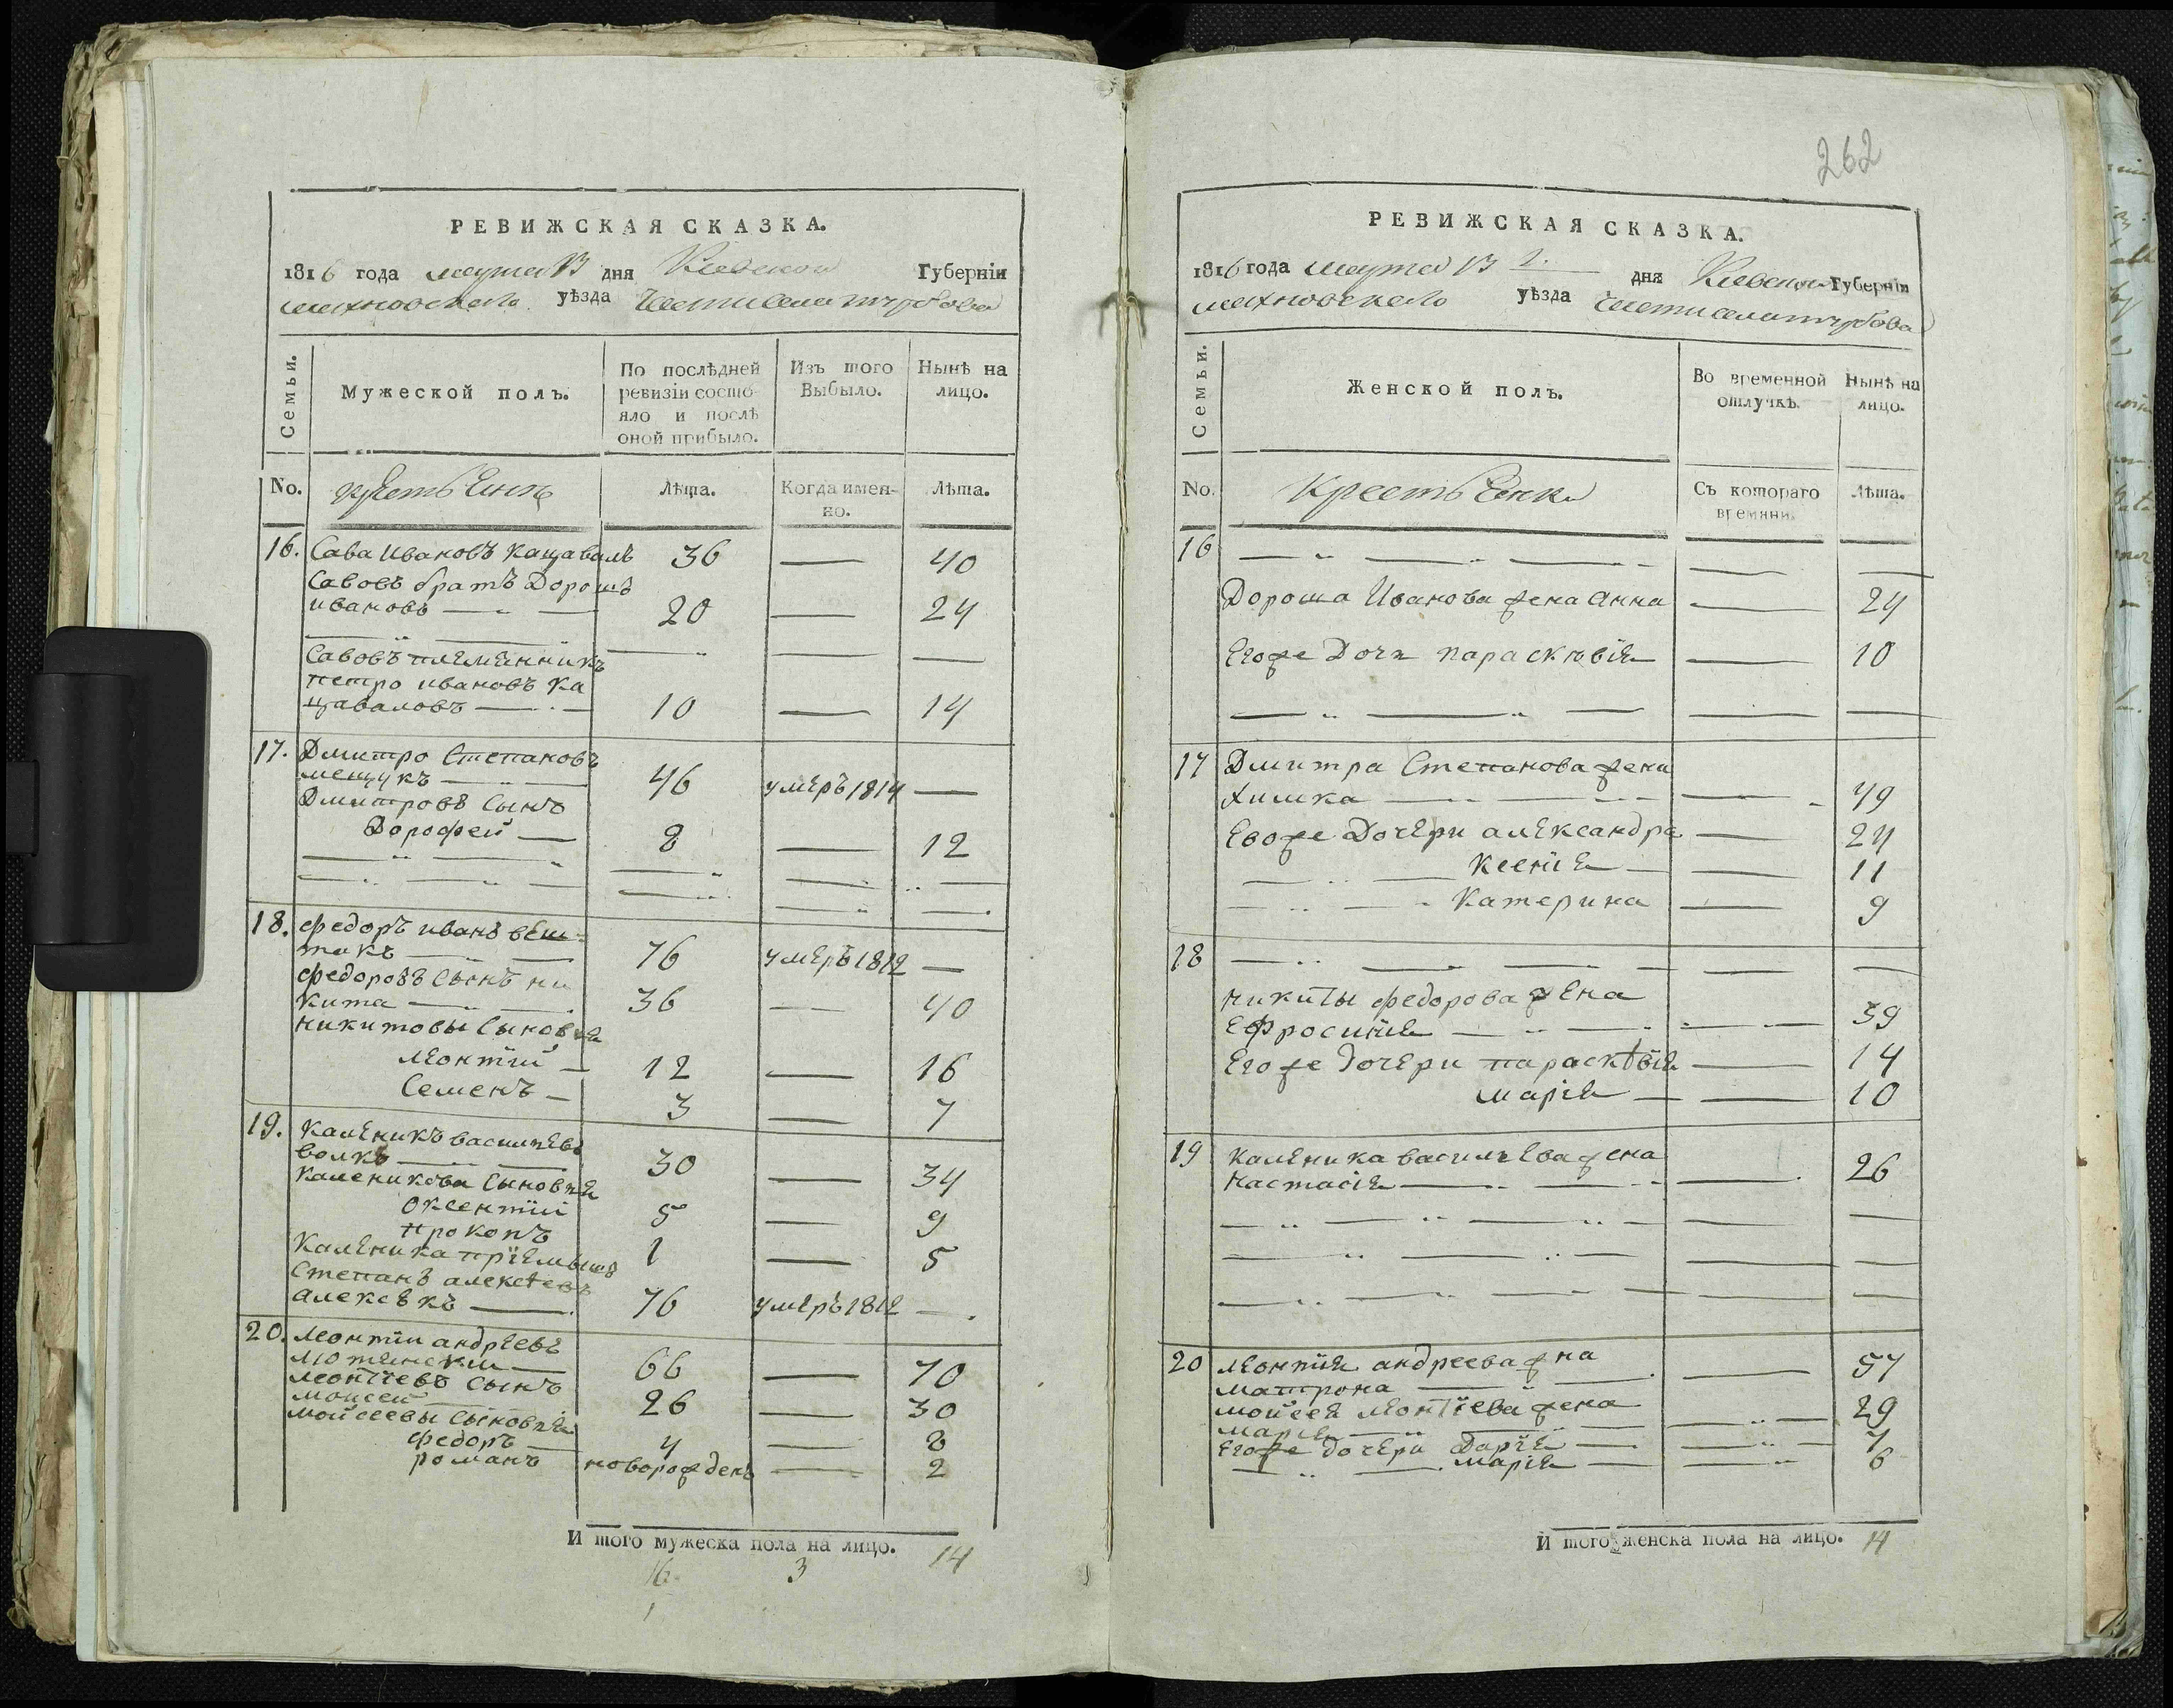 262
РЕВИЖСКАЯ СКАЗКА.
1816 года марта 13 дня Киевской Губерніи
махновского уѣзда части села турбова
Семьи.
Мужеской полъ.
По послѣдней ревизіи состояло и послѣ оной прибыло.
Изъ того Выбыло.
Нынѣ на лицо.
No.
Лѣта.
Когда именно.
Лѣта.
16. Сава Ивановъ кацавалъ 36 — 40
Савовъ братъ Дорошъ
ивановъ — 20 — 24
Савовъ племенникъ
петро ивановъ ка
цаваловъ — 10 — 14
17. Дмитро Степановъ
мещукъ — 46 умеръ 1814 —
Дмитровъ Сынъ
Дорофей — 8 — 12
18. федоръ иванъ веш-
такъ — 76 умеръ 1812 —
федоровъ Сынъ ни
кита — 36 — 40
никитовы Сыновья
леонтій — 12 — 16
Семенъ — 3 — 7
19. каленикъ василевъ
волкъ — 30 — 34
каленикова Сыновья
оксентій 5 — 9
прокопъ 1 — 5
каленика пріемышъ
Степанъ алексѣевъ
алексѣкъ — 76 умеръ 1812 —
20. леонтіи андреевъ
66 — 70
леонтіевъ Сынъ
моисей — 26 — 30
мойсеевы Сыновья
федоръ — 4 — 8
романъ новорожденъ — 2
И того мужеска пола на лицо. 14
16 3
1
РЕВИЖСКАЯ СКАЗКА.
1816 года марта 13 2. дня Киевской Губерніи
махновского уѣзда части села турбова
Семьи.
Женской полъ.
Во временной отлучкѣ.
Нынѣ на лицо.
No.
Крестьянки
Съ котораго времяни.
Лѣта.
16
Дороша Иванова жена Анна — 24
Егоже Дочь параскѣвія — 10
17 Дмитра Степанова жена
химка — 49
Евоже Дочери александра — 24
ксенія — 11
катерина — 9
18
никиты федорова жена
Ефросинія — 39
Егоже дочери параскѣвія — 14
марія — 10
19 каленика василева жена
настасія — 26
20 леонтія андреева жна
матрона — 57
мойсея леонтіева жена
марія — 29
Егоже дочери Дарія — 7
марія — 6
И того женска пола на лицо. 14